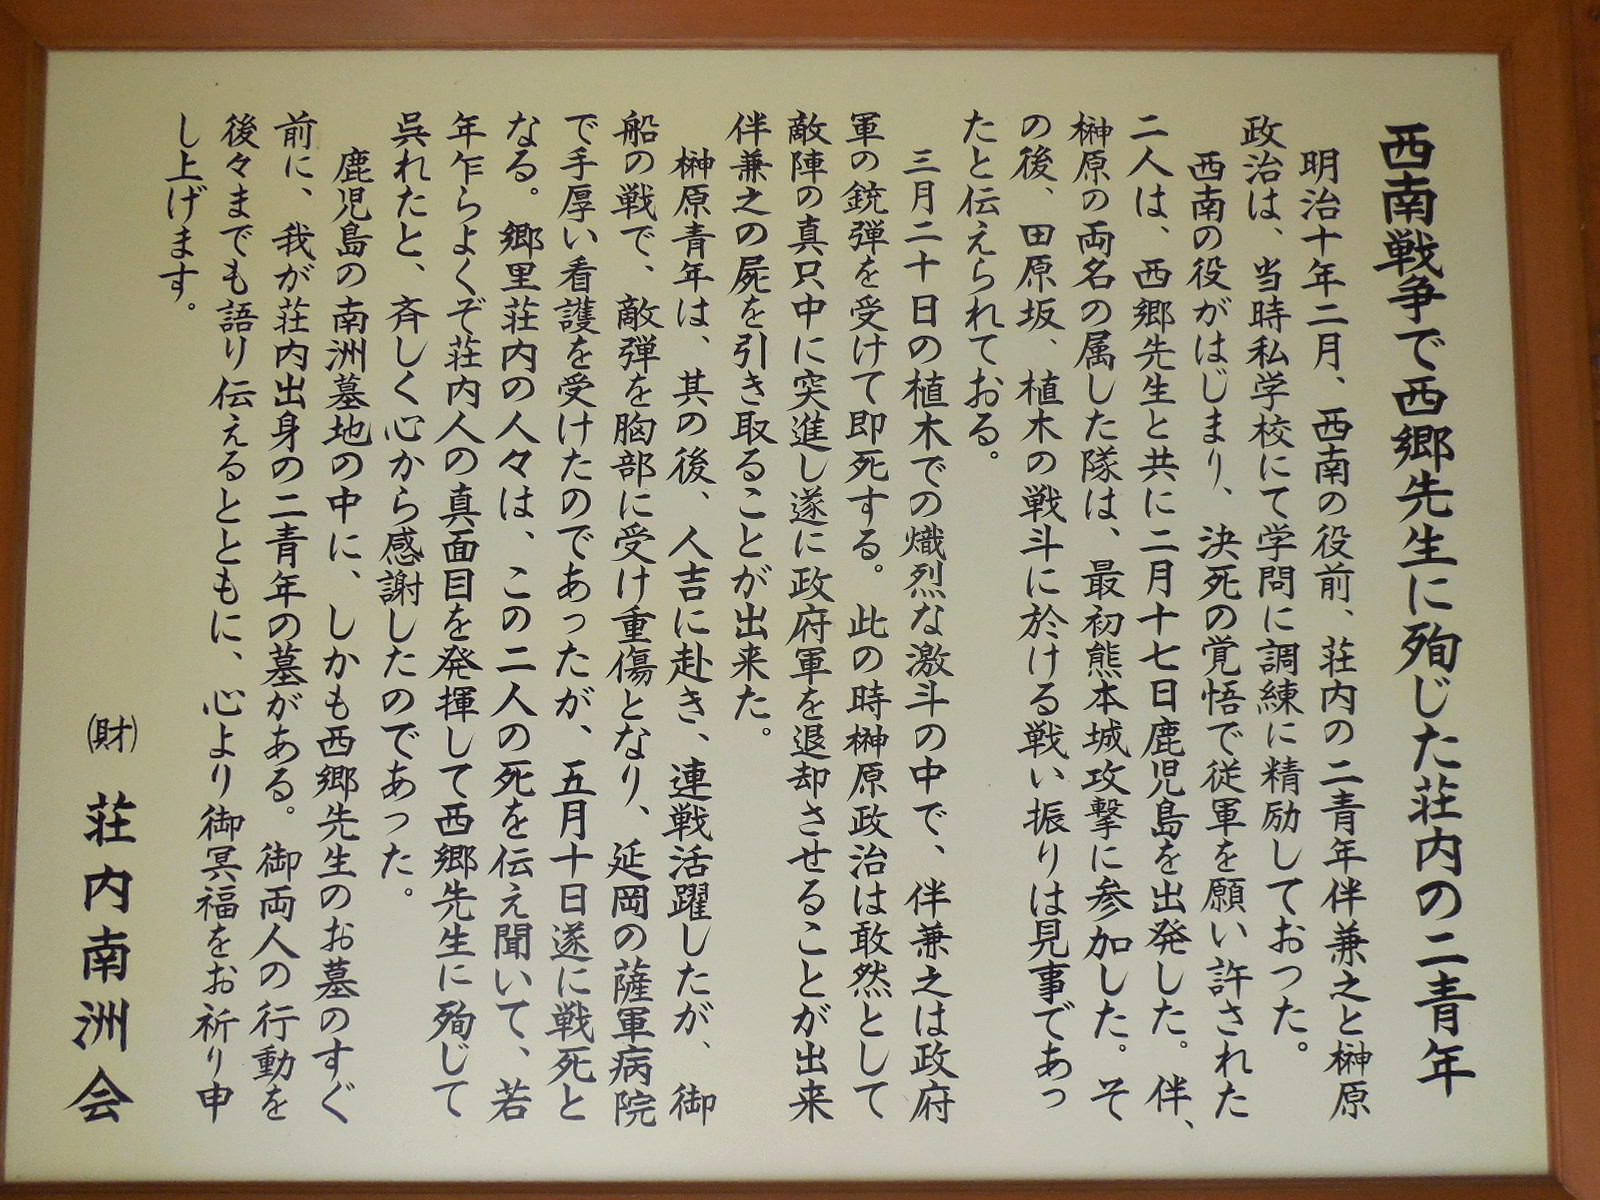 西南戦争で西郷先生に殉じた荘内の二青年
明治十年二月、西南の役前、荘内の二青年伴兼之と榊原
政治は、当時私学校にて学問に調練に精励しておった。
西南の役がはじまり、決死の覚悟で従軍を願い許された
二人は、西郷先生と共に二月十七日鹿児島を出発した。伴、
榊原の両名の属した隊は、最初熊本城攻撃に参加した。そ
の後、田原坂、植木の戦斗に於ける戦い振りは見事であっ
たと伝えられておる。
三月二十日の植木での熾烈な激斗の中で、伴兼之は政府
軍の銃弾を受けて即死する。此の時榊原政治は敢然として
敵陣の真只中に突進し遂に政府軍を退却させることが出来
伴兼之の屍を引き取ることが出来た。
榊原青年は、其の後、人吉に赴き、連戦活躍したが、御
船の戦で、敵弾を胸部に受け重傷となり、延岡の薩軍病院
で手厚い看護を受けたのであったが、五月十日遂に戦死と
なる。郷里荘内の人々は、この二人の死を伝え聞いて、若
年乍らよくぞ荘内人の真面目を発揮して西郷先生に殉じて
呉れたと、斉しく心から感謝したのであった。
鹿児島の南洲墓地の中に、しかも西郷先生のお墓のすぐ
前に、我が荘内出身の二青年の墓がある。御両人の行動を
後々までも語り伝えるとともに、心より御冥福をお祈り申
し上げます。
(財) 荘内南洲会